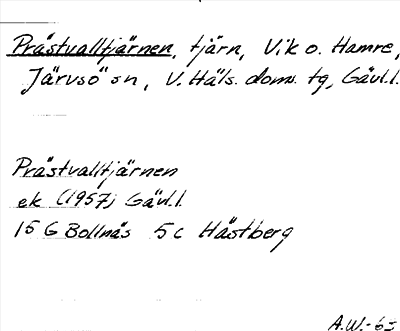 Prästvalltjärnen, tjärn, V.k o. Hamre,
Järvsö sn, V. Häls. doms. tg, Gävl.l.
Prästvalltjärnen
ek (1957) Gävl.l
15 G Bollnäs 5 c Hästberg
A.W.-63